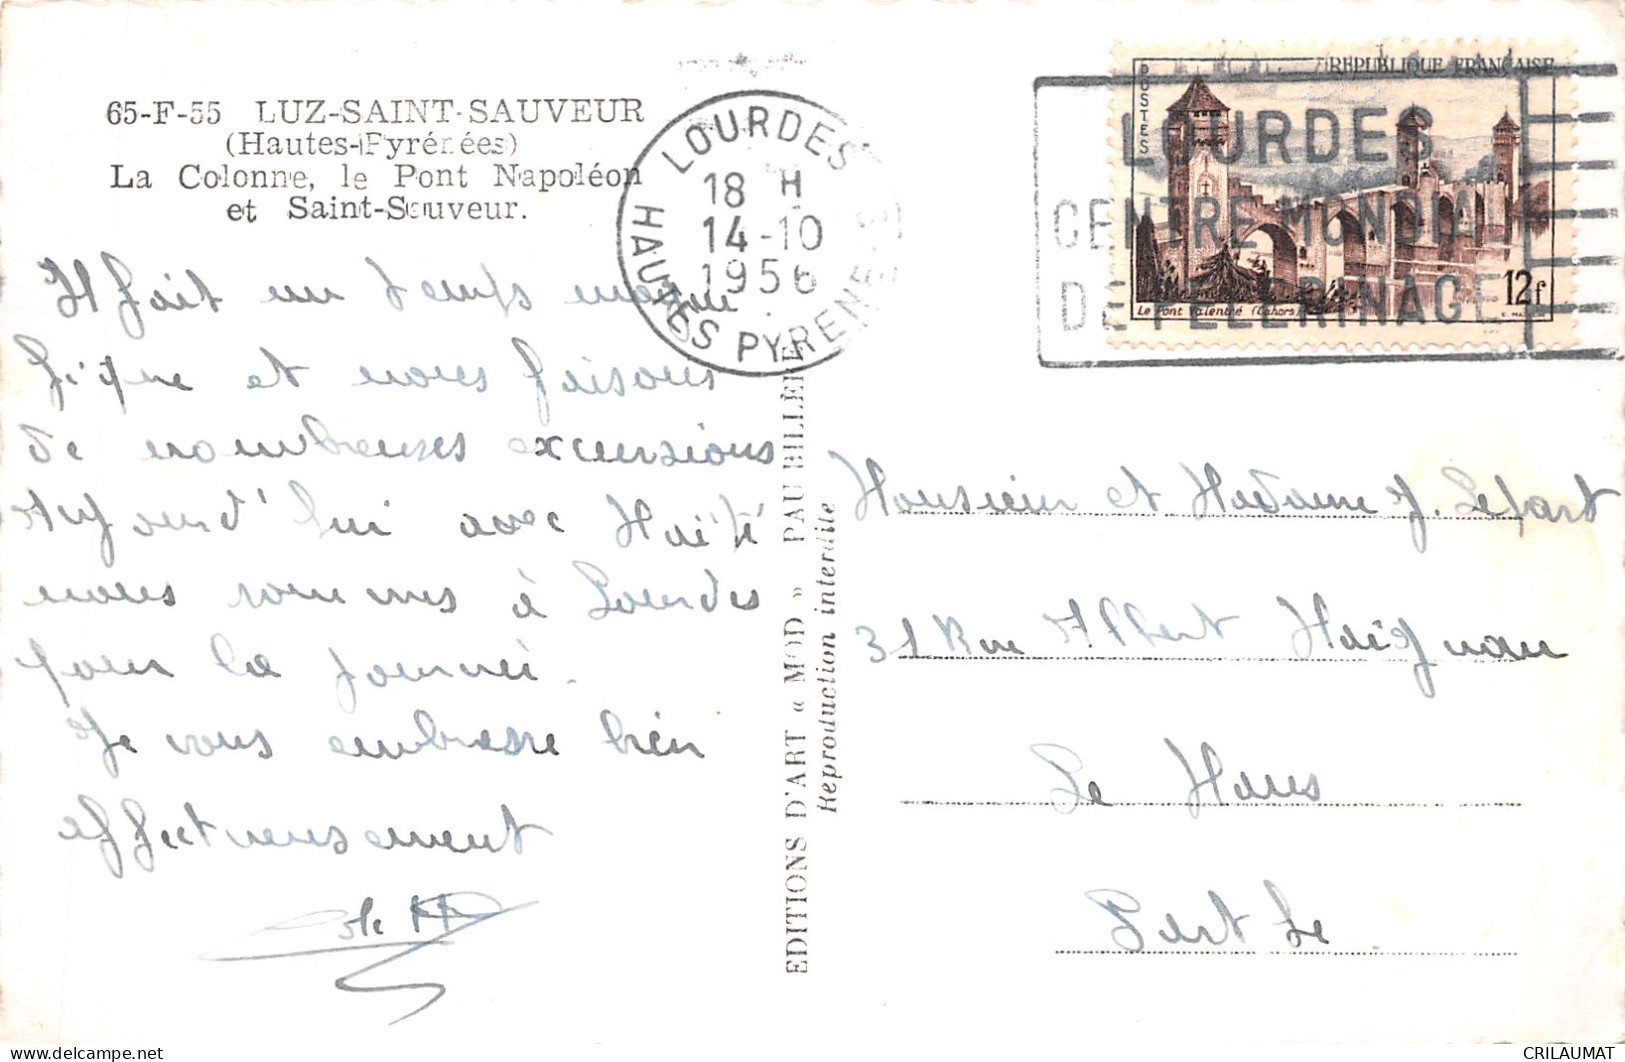 65-F-55 LUZ-SAINT-SAUVEUR
(Hautes-Pyrénées)
La Colonne, le Pont Napoléon
et Saint-Sauveur.
Il fait un temps magni
fique et nous faisons
de nombreuses excursions
Aujourd'hui avec Maïté
nous sommes à Lourdes
pour la journée.
Je vous embrasse bien
affectueusement
LOURDES
18 H
14-10
1956
HAUTES PYRENEES
EDITIONS D'ART « MOD » PAU BILLÈRE
Reproduction interdite
POSTES
REPUBLIQUE FRANÇAISE
Le Pont Valentré (Cahors)
12f
LOURDES
CENTRE MONDIAL
DE PELERINAGE
Monsieur et Madame J.
31 Rue Albert Maignan
Le Mans
Sarthe
CRILAUMAT